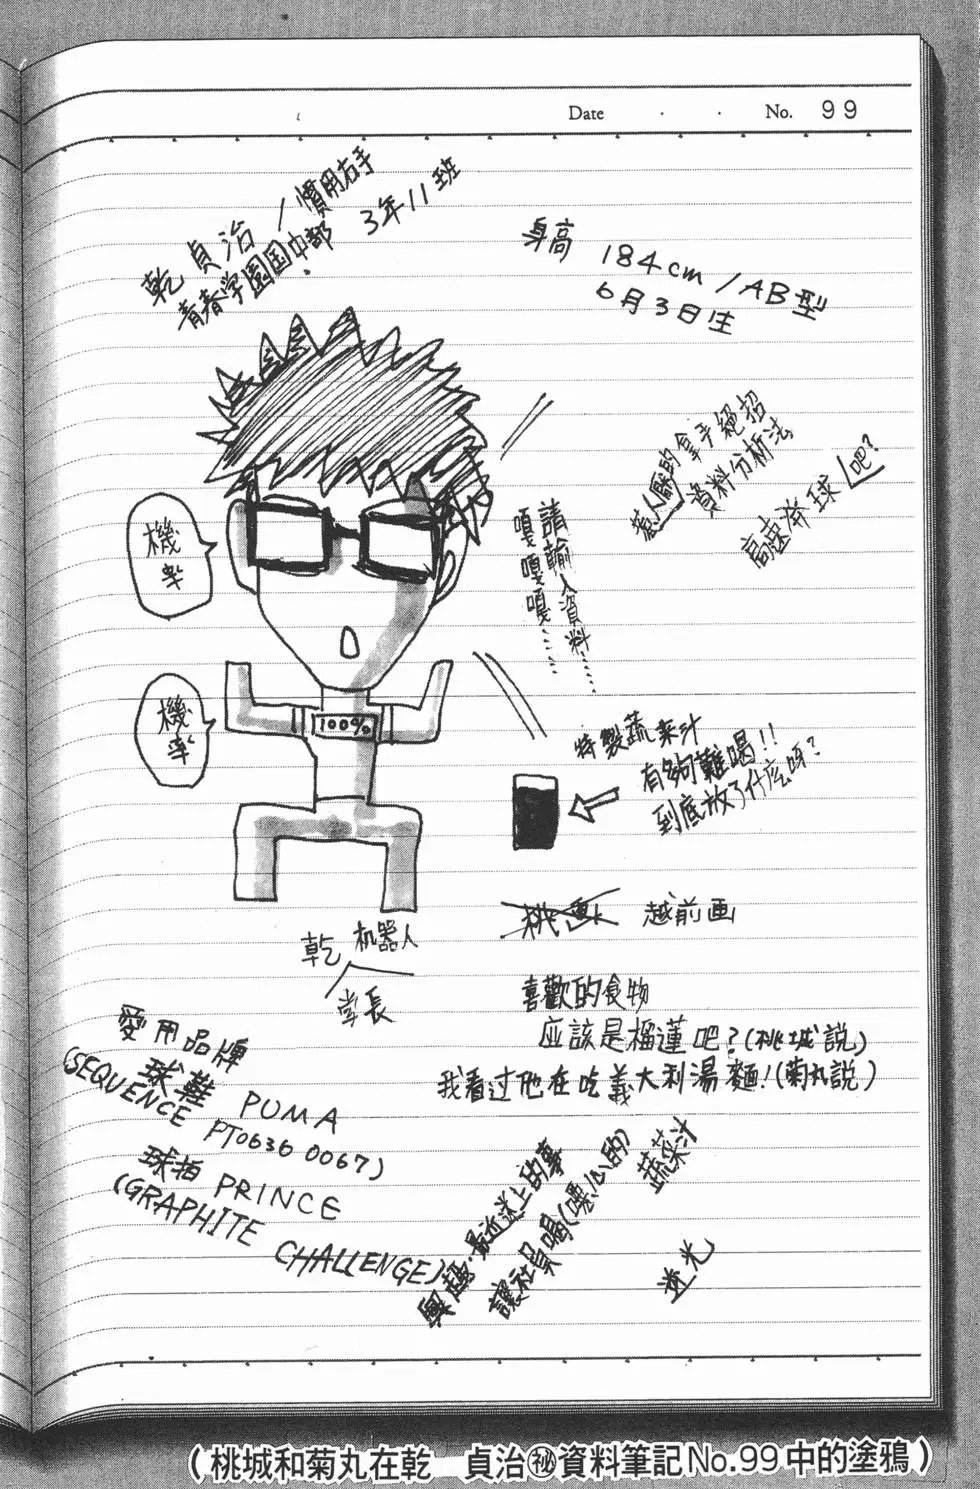 Date . . No. 99
乾 貞治 / 慣用右手
青春学園国中部 3年11班
身高 184cm / AB型
6月3日生
惹人厭的拿手絕招
資料分析法
高速發球吧?
請輸入資料……
嘎嘎嘎……
機率
機率
100%
特製蔬菜汁
有夠難喝!!
到底放了什麼呀?
越前画
乾机器人
学長
喜歡的食物
应該是榴蓮吧?(桃城説)
我看过他在吃義大利湯麵!(菊丸説)
愛用品牌
球鞋 PUMA
(SEQUENCE PT0636 0067)
球拍 PRINCE
(GRAPHITE CHALLENGE)
興趣・最近迷上的事
讓社員喝(噁心的)蔬菜汁
逆光
(桃城和菊丸在乾 貞治㊙資料筆記No.99中的塗鴉)